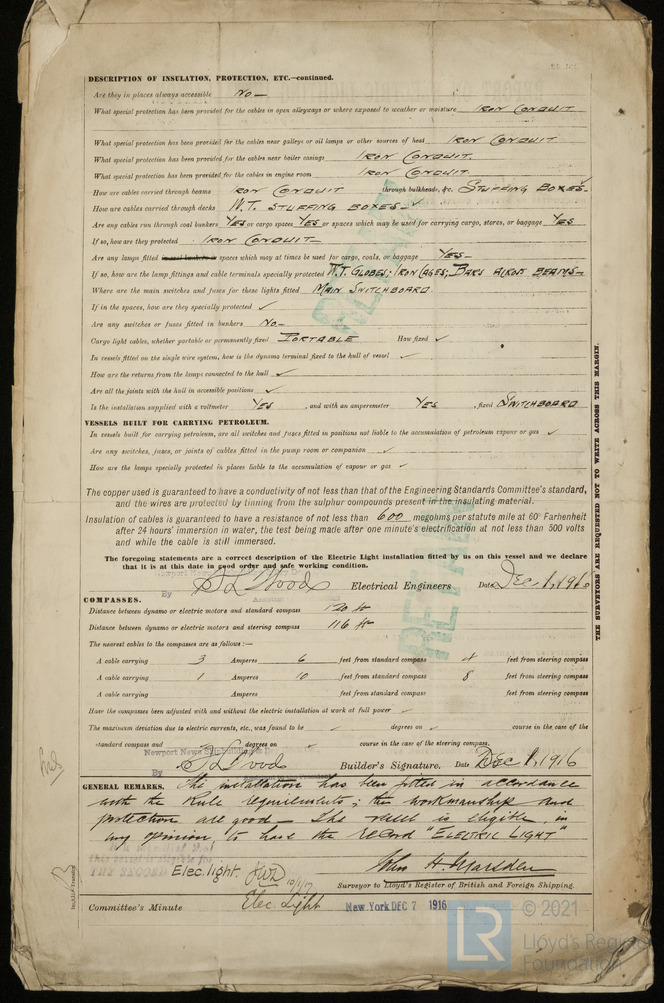 DESCRIPTION OF INSULATION, PROTECTION, ETC.—continued.
Are they in places always accessible No—
What special protection has been provided for the cables in open alleyways or where exposed to weather or moisture IRON CONDUIT
What special protection has been provided for the cables near galleys or oil lamps or other sources of heat IRON CONDUIT
What special protection has been provided for the cables near boiler casings IRON CONDUIT.
What special protection has been provided for the cables in engine room IRON CONDUIT
How are cables carried through beams IRON CONDUIT through bulkheads, &c. STUFFING BOXES—
How are cables carried through decks W.T. STUFFING BOXES— ✓
Are any cables run through coal bunkers YES or cargo spaces YES or spaces which may be used for carrying cargo, stores, or baggage YES
If so, how are they protected IRON CONDUIT—
Are any lamps fitted in coal bunkers or spaces which may at times be used for cargo, coals, or baggage YES—
If so, how are the lamp fittings and cable terminals specially protected W.T. GLOBES; IRON CAGES; BARS ACROSS BEAMS—
Where are the main switches and fuses for these lights fitted MAIN SWITCHBOARD
If in the spaces, how are they specially protected ✓
Are any switches or fuses fitted in bunkers NO—
Cargo light cables, whether portable or permanently fixed PORTABLE How fixed ✓
In vessels fitted on the single wire system, how is the dynamo terminal fixed to the hull of vessel ✓
How are the returns from the lamps connected to the hull ✓
Are all the joints with the hull in accessible positions ✓
Is the installation supplied with a voltmeter YES , and with an amperemeter YES , fixed SWITCHBOARD
VESSELS BUILT FOR CARRYING PETROLEUM.
In vessels built for carrying petroleum, are all switches and fuses fitted in positions not liable to the accumulation of petroleum vapour or gas ✓
Are any switches, fuses, or joints of cables fitted in the pump room or companion ✓
How are the lamps specially protected in places liable to the accumulation of vapour or gas ✓
The copper used is guaranteed to have a conductivity of not less than that of the Engineering Standards Committee's standard,
and the wires are protected by tinning from the sulphur compounds present in the insulating material.
Insulation of cables is guaranteed to have a resistance of not less than 600 megohms per statute mile at 60° Farhenheit
after 24 hours' immersion in water, the test being made after one minute's electrification at not less than 500 volts
and while the cable is still immersed.
The foregoing statements are a correct description of the Electric Light installation fitted by us on this vessel and we declare
that it is at this date in good order and safe working condition.
By Electrical Engineers Date Dec 1, 1916
COMPASSES.
Distance between dynamo or electric motors and standard compass 120 ft
Distance between dynamo or electric motors and steering compass 116 ft
The nearest cables to the compasses are as follows:—
A cable carrying 3 Amperes 6 feet from standard compass 4 feet from steering compass
A cable carrying 1 Amperes 10 feet from standard compass 8 feet from steering compass
A cable carrying Amperes feet from standard compass feet from steering compass
Have the compasses been adjusted with and without the electric installation at work at full power ✓
The maximum deviation due to electric currents, etc., was found to be ✓ degrees on ✓ course in the case of the
standard compass and degrees on ✓ course in the case of the steering compass.
Newport News Shipbuilding
By Builder's Signature. Date Dec 1, 1916
GENERAL REMARKS. This installation has been fitted in accordance
with the Rule requirements; the workmanship and
protection are good— The vessel is eligible, in
my opinion to have the record "ELECTRIC LIGHT"
this vessel is eligible for
THE RECORD Elec. light. 10/1/17
John H. Marsden
Surveyor to Lloyd's Register of British and Foreign Shipping.
Committee's Minute Elec. Light New York DEC 7 1916
THE SURVEYORS ARE REQUESTED NOT TO WRITE ACROSS THIS MARGIN.
LR
© 2021
Lloyd's Register
Foundation